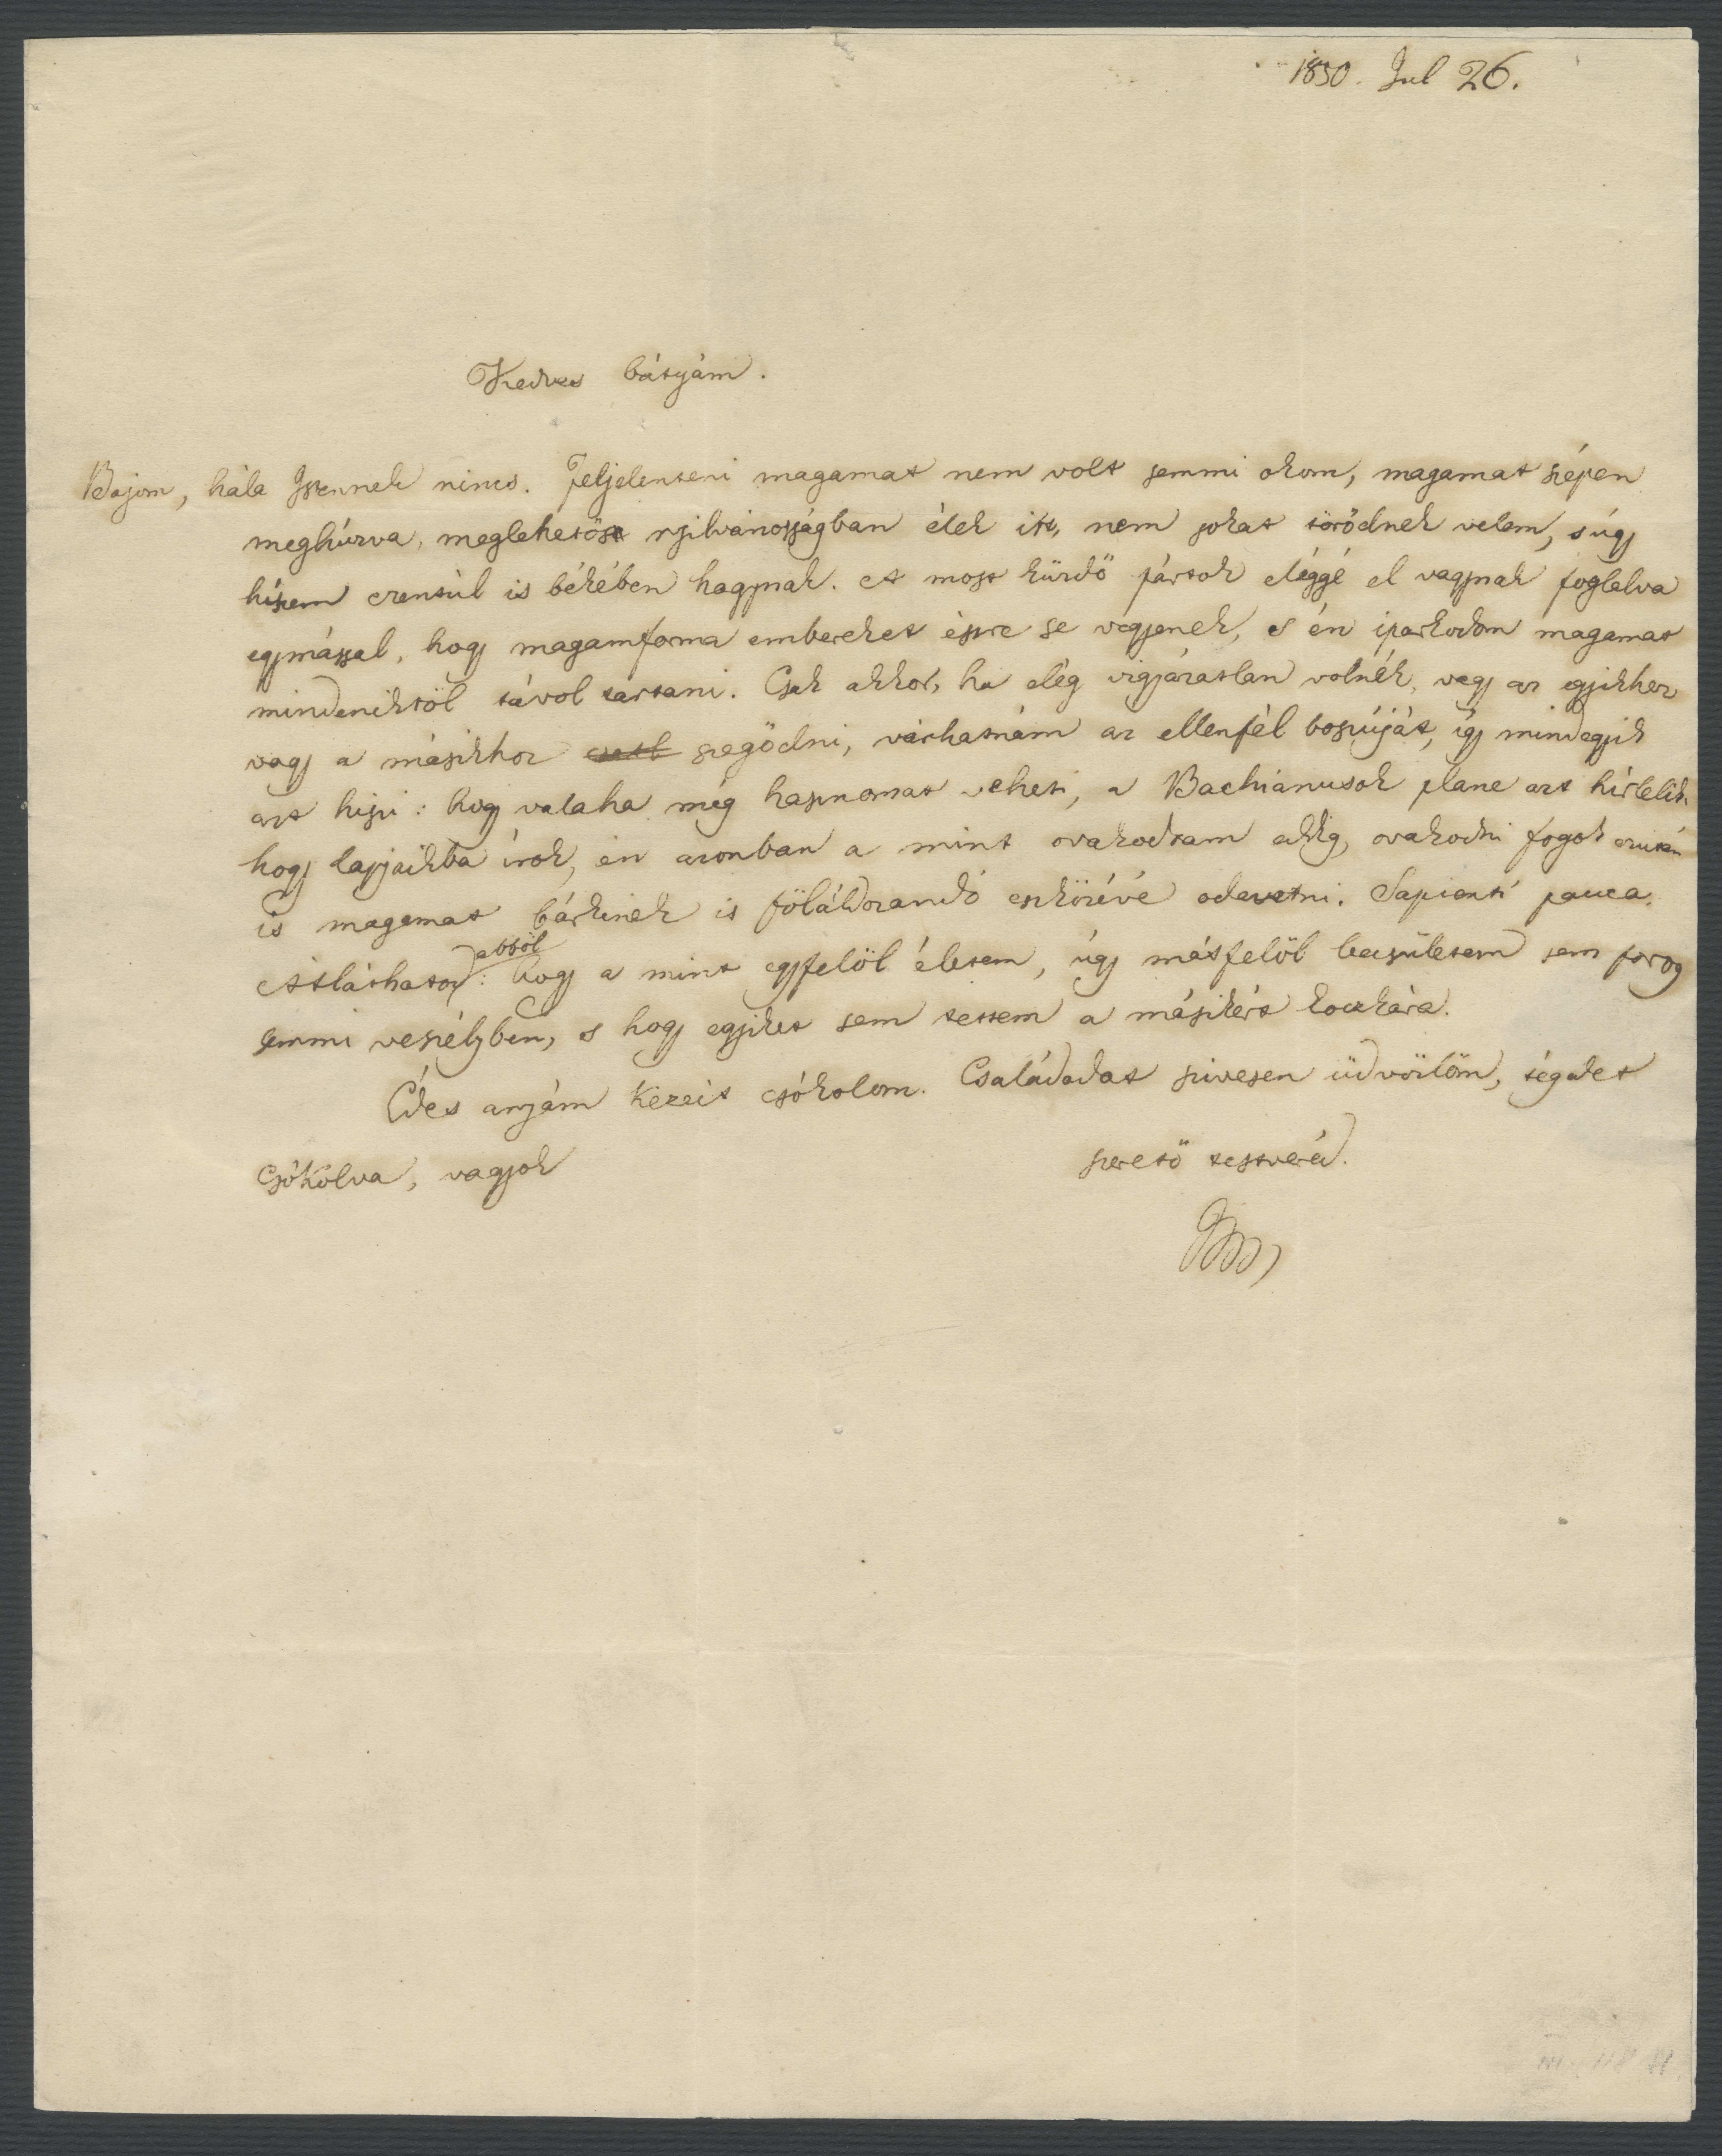 1850. Jul 26.
Kedves bátyám.
Bajom, hála Istennek nincs. Feljelenteni magamat nem volt semmi okom, magamat szépen
meghúzva, meglehetős nyilvánosságban élek itt, nem sokat törődnek velem, s úgy
hiszem ezentúl is békében hagynak. A most küzdő pártok eléggé el vagynak foglalva
egymással, hogy magamforma embereket észre se vegyenek, s én iparkodom magamat
mindeniktől távol tartani. Csak akkor, ha elég vigyázatlan volnék, vagy az egyikhez
vagy a másikhoz szegődni, várhatnám az ellenfél boszúját, így mindegyik
azt hiszi: hogy valaha még hasznomat veheti, a Bachianusok plane azt hírlelik,
hogy lapjaikba írok, én azonban a mint ovakodtam eddig, ovakodni fogok ezután
is magamat bárkinek is föláldozandó eszközévé odavetni. Sapienti pauca.
Átláthatod ebből: hogy a mint egyfelől életem, úgy másfelől becsületem sem forog
semmi veszélyben, s hogy egyiket sem tettem a másikért koczkára.
Édes anyám kezeit csókolom. Családodat szivesen üdvözlöm, tégedet
csókolva, vagyok
szerető testvered.